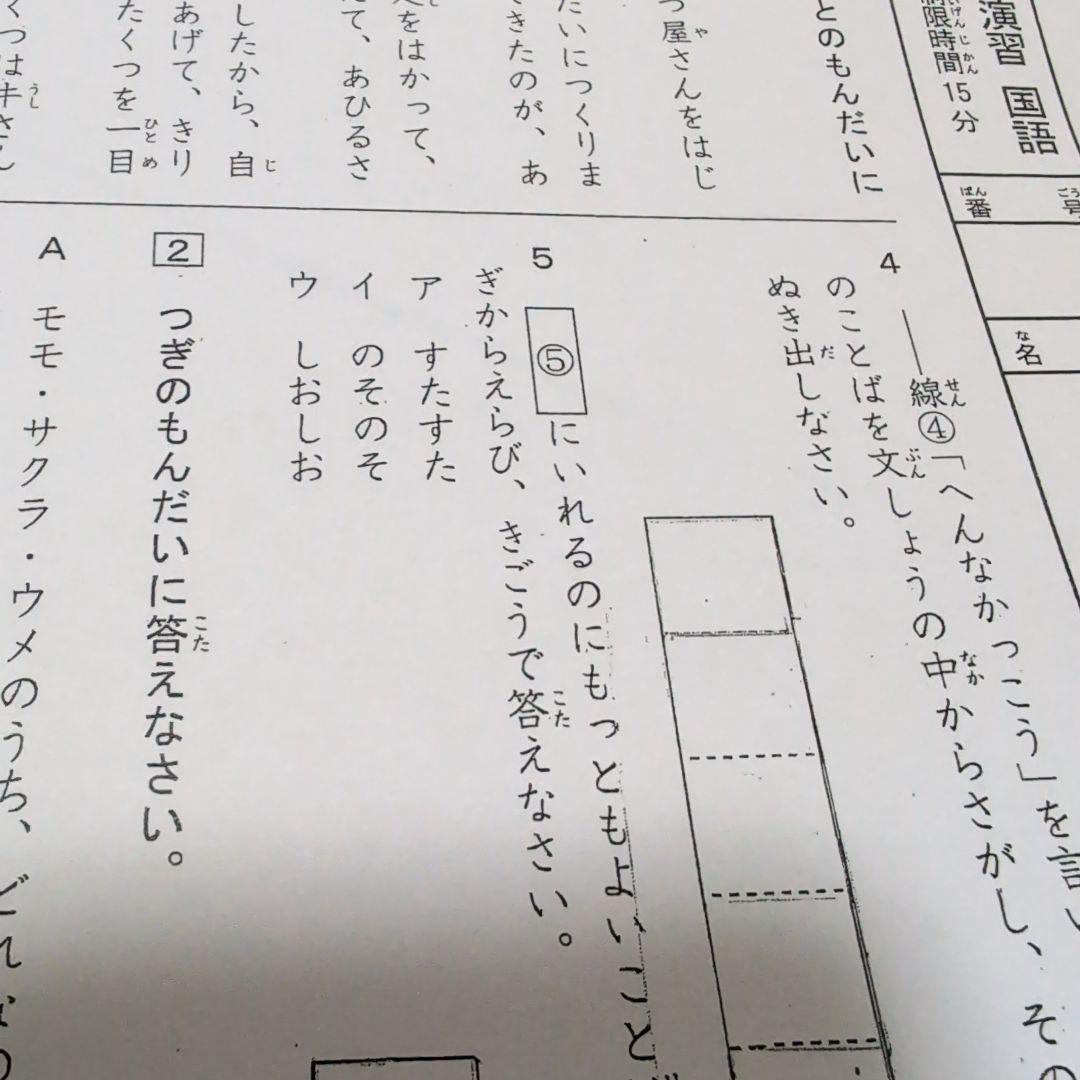 演習 国語
制限時間 15分
番号
名
とのもんだいに
つ屋さんをはじ
たいにつくりま
きたのが、あ
をはかって、
て、あひるさ
したから、自
あげて、きり
たくつを一目
くつは牛さん
4 ――線④「へんなかっこう」を言い
のことばを文しょうの中からさがし、その
ぬき出しなさい。
5 ⑤にいれるのにもっともよいことば
ぎからえらび、きごうで答えなさい。
ア すたすた
イ のそのそ
ウ しおしお
2 つぎのもんだいに答えなさい。
A モモ・サクラ・ウメのうち、どれ